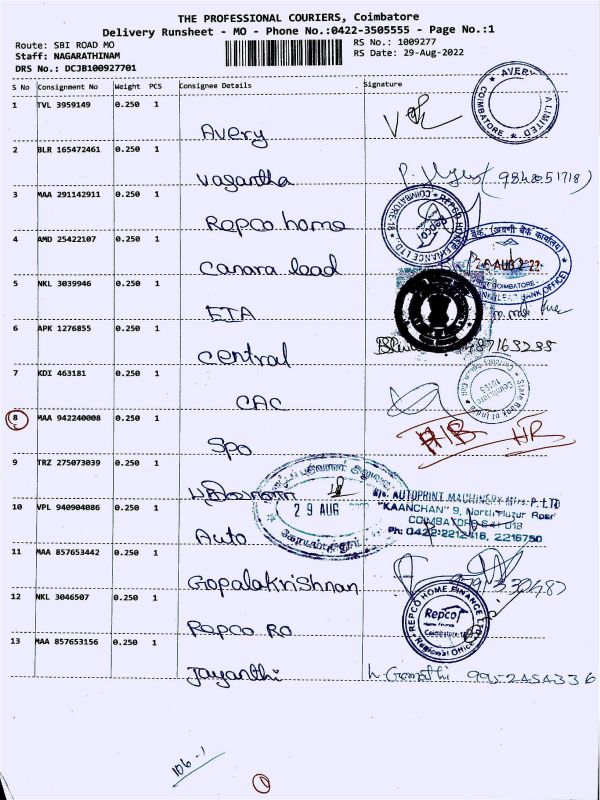 THE PROFESSIONAL COURIERS, Coimbatore
Delivery Runsheet - MO - Phone No.:0422-3505555 - Page No.:1
Route: SBI ROAD MO
RS No.: 1009277
Staff: NAGARATHINAM
RS Date: 29-Aug-2022
DRS No.: DCJB100927701
S No Consignment No Weight PCS Consignee Details Signature
1 TVL 3959149 0.250 1
Avery
AVERY A LIMITED COIMBATORE
2 BLR 165472461 0.250 1
Vasantha
3 MAA 291142911 0.250 1
Repco home
REPCO HOME FINANCE LTD. COIMBATORE-18
Repco
4 AMD 25422107 0.250 1
Canara lead
5 NKL 3039946 0.250 1
EIA
6 APK 1276855 0.250 1
Central
7 KDI 463181 0.250 1
CAC
State Bank of India
Coimbatore
8 MAA 942240008 0.250 1
Spo
9 TRZ 275073039 0.250 1
29 AUG
10 VPL 940904086 0.250 1
Auto
AUTOPRINT MACHINERY Mfrs. P. LTD
"KAANCHAN" 9, North Huzur Road
COIMBATORE 641 018
Ph: 0422-2212416, 2216750
11 MAA 857653442 0.250 1
Gopalakrishnan
12 NKL 3046507 0.250 1
Repco RO
REPCO HOME FINANCE LTD
Repco
Home Finance
Coimbatore
Regional Office
13 MAA 857653156 0.250 1
Jayanthi
h. Gomathi
106-1
1